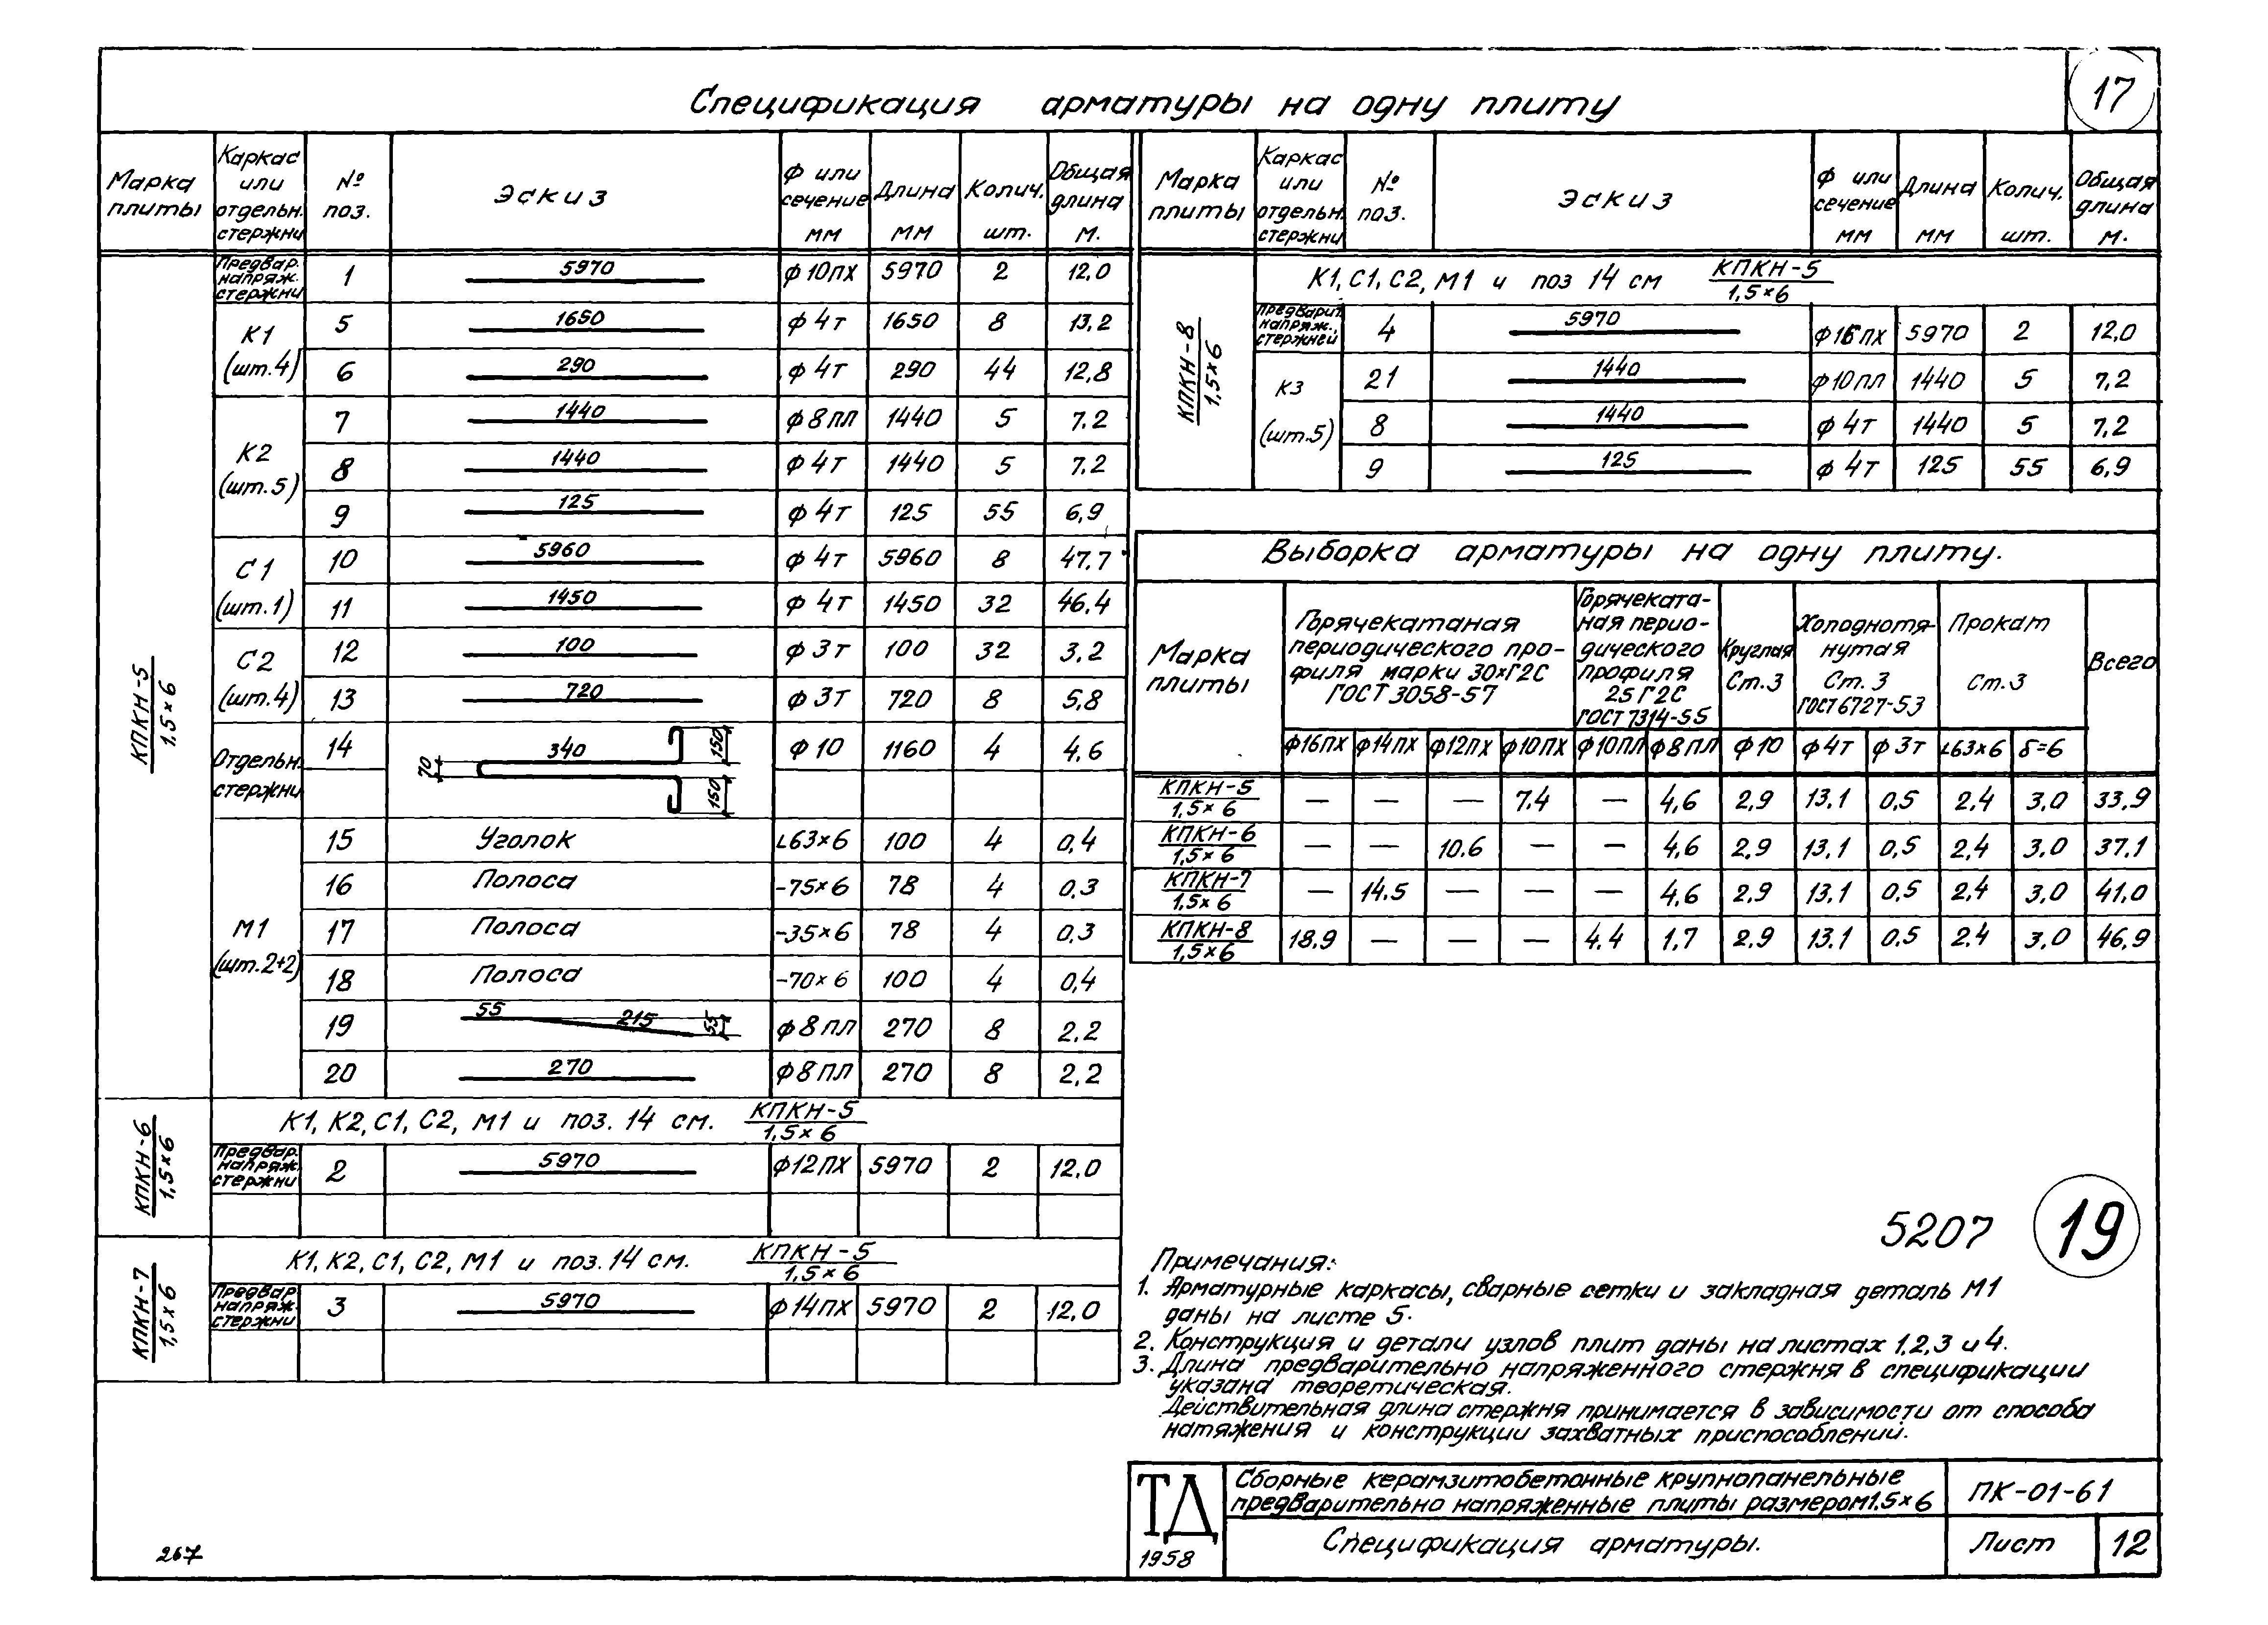 17
Спецификация арматуры на одну плиту
Марка плиты | Каркас или отдельн. стержни | № поз. | Эскиз | ф или сечение мм | Длина мм | Колич. шт. | Общая длина м.
КПКН-5 1,5×6
Предвар. напряж. стержни | 1 | 5970 | ф 10ПХ | 5970 | 2 | 12,0
К1 (шт.4) | 5 | 1650 | ф 4т | 1650 | 8 | 13,2
6 | 290 | ф 4т | 290 | 44 | 12,8
К2 (шт.5) | 7 | 1440 | ф 8пл | 1440 | 5 | 7.2
8 | 1440 | ф 4т | 1440 | 5 | 7.2
9 | 125 | ф 4т | 125 | 55 | 6,9
С1 (шт.1) | 10 | 5960 | ф 4т | 5960 | 8 | 47,7
11 | 1450 | ф 4т | 1450 | 32 | 46.4
С2 (шт.4) | 12 | 100 | ф 3т | 100 | 32 | 3,2
13 | 720 | ф 3т | 720 | 8 | 5,8
Отдельн. стержни | 14 | 70 340 150 150 | ф 10 | 1160 | 4 | 4,6
М1 (шт.2+2) | 15 | Уголок | L63×6 | 100 | 4 | 0,4
16 | Полоса | -75×6 | 78 | 4 | 0.3
17 | Полоса | -35×6 | 78 | 4 | 0,3
18 | Полоса | -70×6 | 100 | 4 | 0,4
19 | 55 215 55 | ф 8пл | 270 | 8 | 2.2
20 | 270 | ф 8пл | 270 | 8 | 2,2
КПКН-6 1,5×6
К1, К2, С1, С2, М1 и поз. 14 см. КПКН-5 1,5×6
Предвар. напряж. стержни | 2 | 5970 | ф12ПХ | 5970 | 2 | 12,0
КПКН-7 1,5×6
К1, К2, С1, С2, М1 и поз. 14 см. КПКН-5 1,5×6
Предвар. напряж. стержни | 3 | 5970 | ф14ПХ | 5970 | 2 | 12,0
267
Марка плиты | Каркас или отдельн. стержни | № поз. | Эскиз | ф или сечение мм | Длина мм | Колич. шт. | Общая длина м.
КПКН-8 1,5×6
К1, С1, С2, М1 и поз 14 см КПКН-5 1,5×6
Предварит. напряж., стержней | 4 | 5970 | ф16ПХ | 5970 | 2 | 12,0
К3 (шт.5) | 21 | 1440 | ф10пл | 1440 | 5 | 7,2
8 | 1440 | ф 4т | 1440 | 5 | 7,2
9 | 125 | ф 4т | 125 | 55 | 6,9
Выборка арматуры на одну плиту.
Марка плиты | Горячекатаная периодического профиля марки 30хГ2С ГОСТ 3058-57 | Горячекатаная периодического профиля 25Г2С ГОСТ 7314-55 | Круглая Ст.3 | Холоднотянутая Ст. 3 ГОСТ 6727-53 | Прокат Ст.3 | Всего
ф16ПХ | ф14ПХ | ф12ПХ | ф10ПХ | ф10пл | ф8пл | ф10 | ф4т | ф3т | L63×6 | δ=6
КПКН-5 1,5×6 | — | — | — | 7.4 | — | 4,6 | 2,9 | 13,1 | 0,5 | 2,4 | 3,0 | 33,9
КПКН-6 1,5×6 | — | — | 10.6 | — | — | 4,6 | 2,9 | 13,1 | 0,5 | 2,4 | 3,0 | 37,1
КПКН-7 1,5×6 | — | 14.5 | — | — | — | 4,6 | 2,9 | 13,1 | 0,5 | 2,4 | 3,0 | 41,0
КПКН-8 1,5×6 | 18.9 | — | — | — | 4.4 | 1,7 | 2,9 | 13,1 | 0,5 | 2,4 | 3,0 | 46,9
5207 19
Примечания:
1. Арматурные каркасы, сварные сетки и закладная деталь М1
даны на листе 5.
2. Конструкция и детали узлов плит даны на листах 1,2,3 и 4.
3. Длина предварительно напряженного стержня в спецификации
указана теоретическая.
Действительная длина стержня принимается в зависимости от способа
натяжения и конструкции захватных приспособлений.
ТД
1958
Сборные керамзитобетонные крупнопанельные
предварительно напряженные плиты размером 1.5×6
ПК-01-61
Спецификация арматуры.
Лист 12